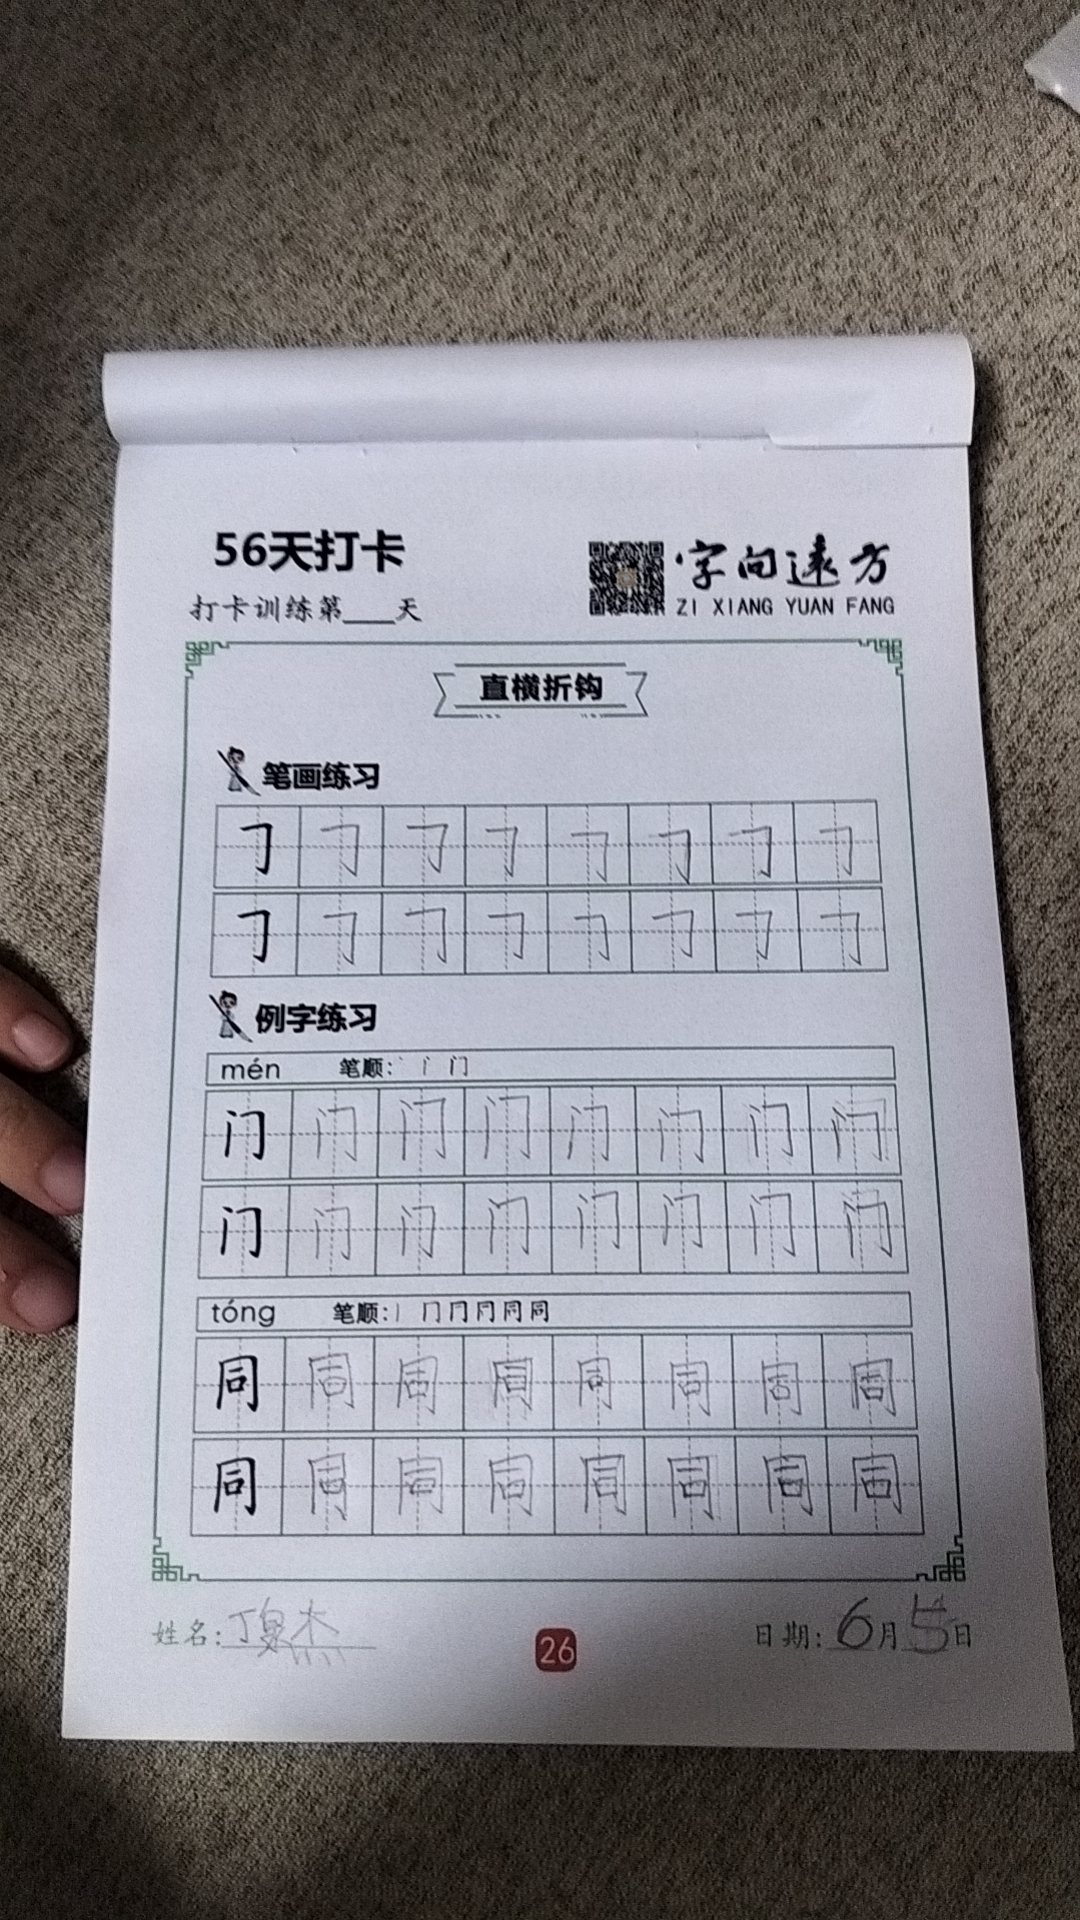 56天打卡
字向远方
打卡训练第___天
ZI XIANG YUAN FANG
直横折钩
笔画练习
𠃌 𠃌 𠃌 𠃌 𠃌 𠃌 𠃌 𠃌
𠃌 𠃌 𠃌 𠃌 𠃌 𠃌 𠃌 𠃌
例字练习
mén 笔顺: 丶 门
门 门 门 门 门 门 门 门
门 门 门 门 门 门 门 门
tóng 笔顺: 丨 冂 同
同 同 同 同 同 同 同 同
同 同 同 同 同 同 同 同
姓名: 丁 杰
26
日期: 6月5日